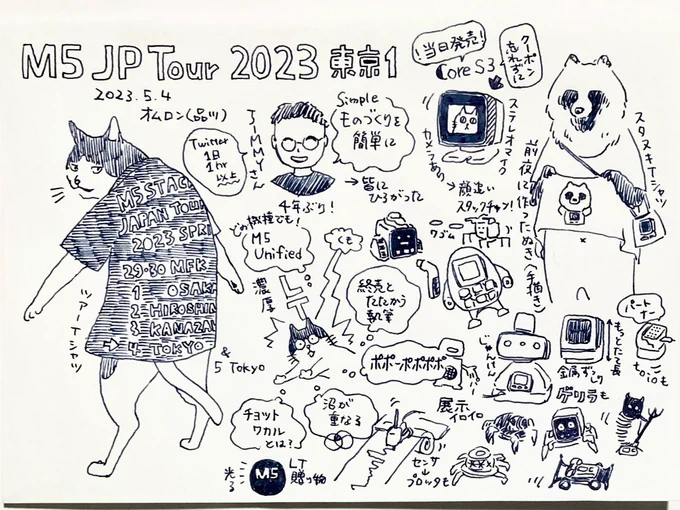 M5 JP Tour 2023 東京1
2023.5.4
オムロン(品川)
当日発売!
Core S3
クーポン
忘れずに
Twitter
1日
1hr
以上
JIMMYさん
Simple
ものづくりを
簡単に
→皆に
ひろがった
4年ぶり!
ステレオマイク
カメラあり
顔追い
スタックチャン!
スタヌキTシャツ
前夜に作ったたぬき(手描き)
M5STACK
JAPAN TOUR
2023 SPRI
29-30 MFK
1 OSAKA
2 HIROSHIM
3 KANAZAW
→4 TOKYO
& 5 Tokyo
ツアーTシャツ
どの機種でも!
M5
Unified
くも
ワゴム
濃厚
LT
終売と
たたかう
執筆
ポポーポポポポ
じゃんけん
金属ずっしり
もっとた長
パート
ナー
ゲリラも
チョット
ワカル
とは?
沼が
重なる
展示
イロイロ
センサ
プロッタも
光る
M5
LT
贈り物